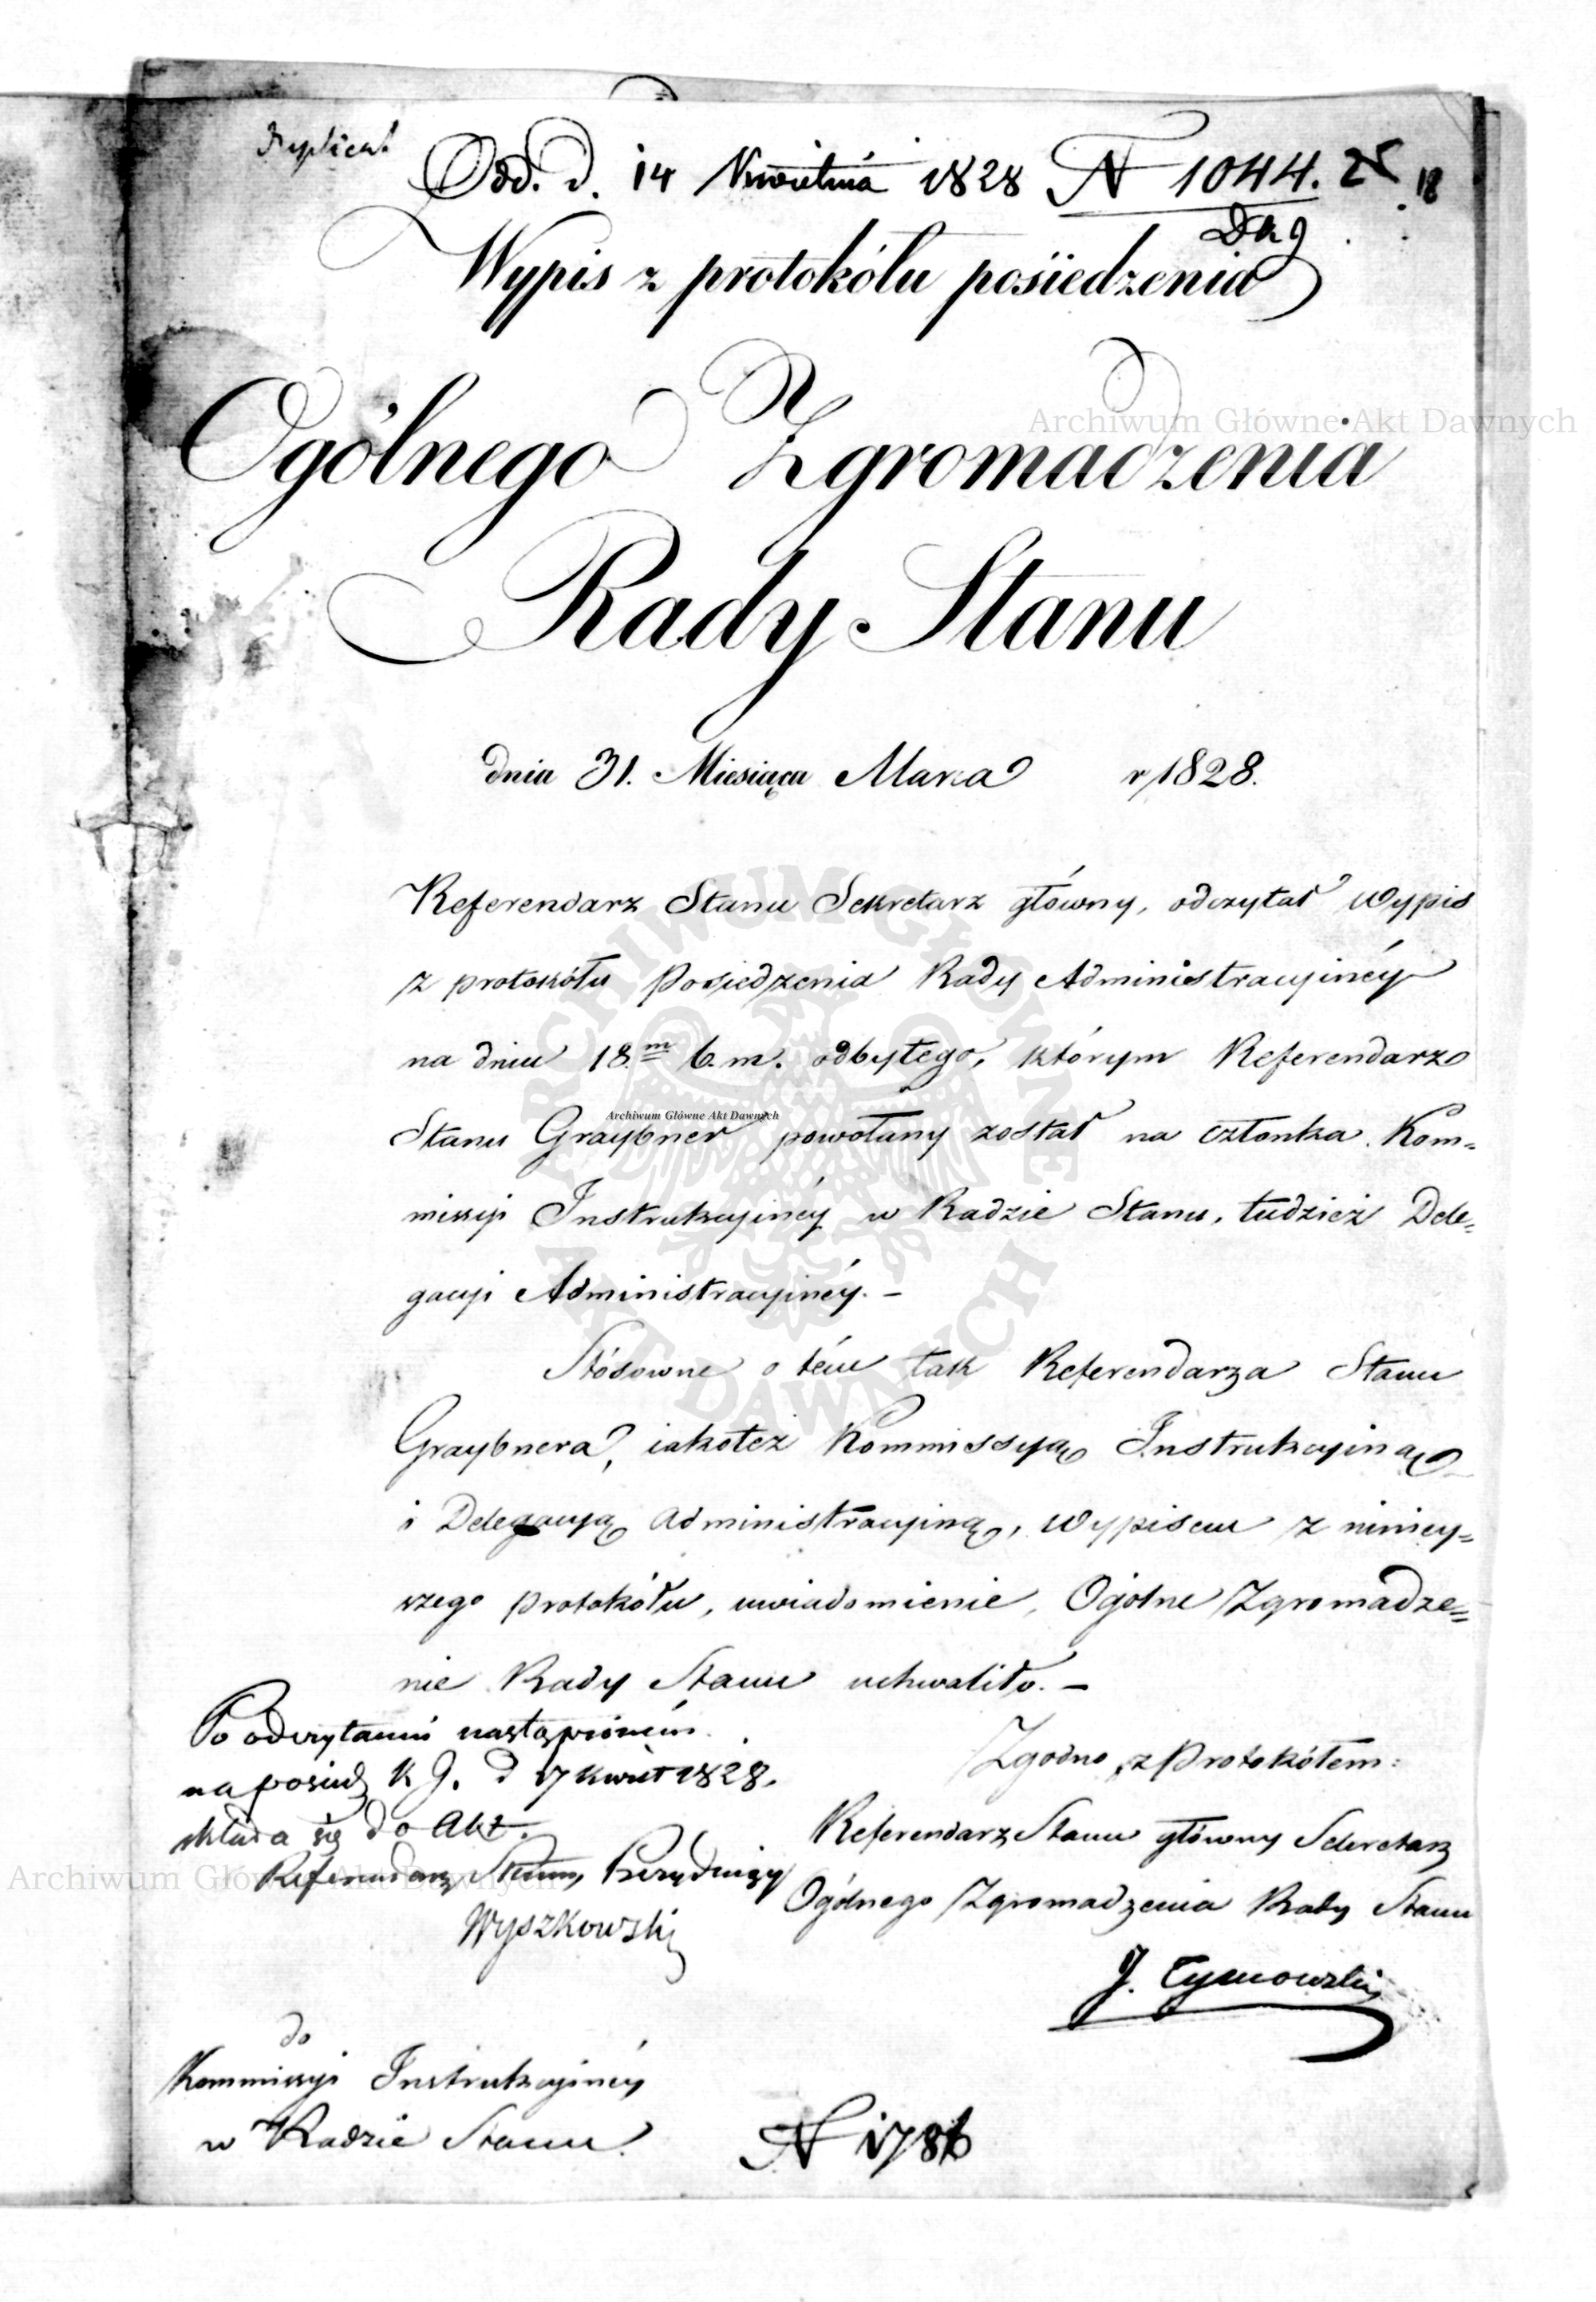 Duplicat
Odd. d. 14 Kwietnia 1828 N 1044. 25 18
Wypis z protokółu posiedzenia
Ogólnego Zgromadzenia
Rady Stanu
dnia 31. Miesiąca Marca r 1828.
Referendarz Stanu Sekretarz główny, odczytał wypis
z protokółu Posiedzenia Rady Administracyinéy
na dniu 18.m b.m. odbytego, którym Referendarz
Stanu Graybner powołany został na członka Kom=
missyi Instrukcyinéy w Radzie Stanu, tudzież Dele=
gacyi Administracyinéy. –
Stósowne o tém tak Referendarza Stanu
Graybnera, iakotéż Kommissyą Instrukcyiną
i Delegacyą administracyiną, wypisem z niniey=
szego protokółu, uwiadomienie, Ogólne Zgromadze=
nie Rady Stanu uchwaliło. –
Po odczytaniu nastąpioném
na posiedz K J. d 17 kwiet 1828.
składa się do Akt.
Referendarz Stanu
Wyszkowski
Zgodno z Protokółem:
Referendarz Stanu główny Sekretarz
Ogólnego Zgromadzenia Rady Stanu
J. Tymowski
do
Kommissyi Instrukcyinéy
w Radzie Stanu.
N 1786
Archiwum Główne Akt Dawnych
Archiwum Główne Akt Dawnych
Archiwum Główne Akt Dawnych
ARCHIWUM GŁÓWNE AKT DAWNYCH